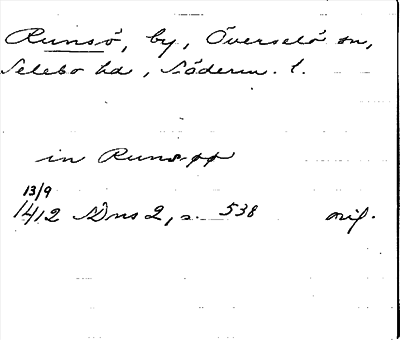 Runsö, by, Överselö sn,
Selebo hd, Söderm. l.
in Runsøø
13/9
1412 SDns 2, s. 538 orig.